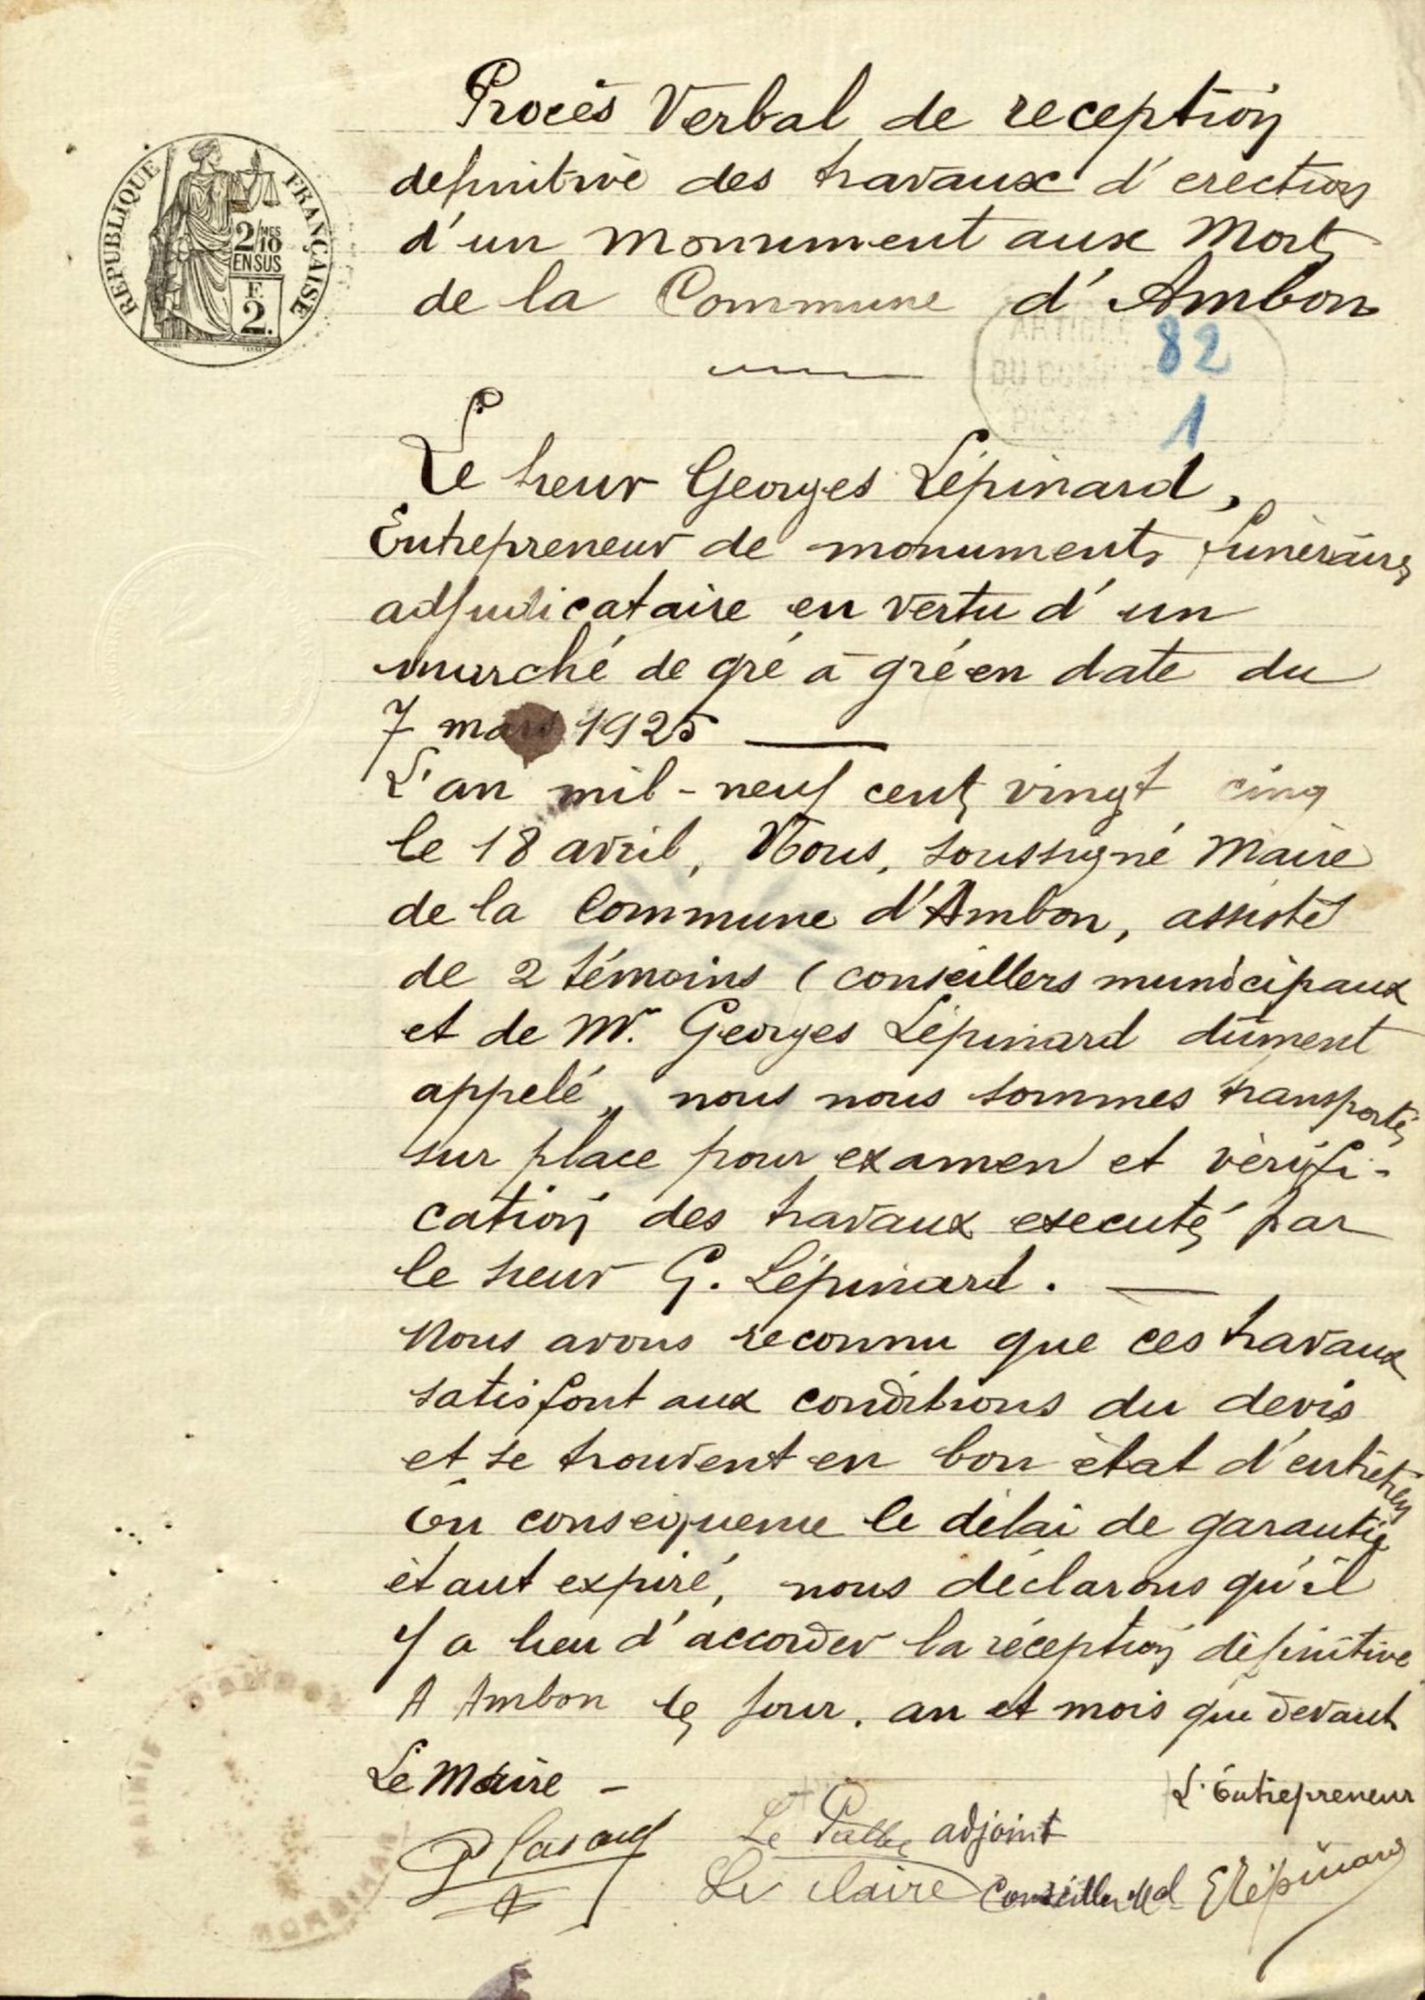 Procès Verbal de reception
definitive des travaux d'erection
d'un monument aux Morts
de la Commune d'Ambon
RÉPUBLIQUE FRANÇAISE
2/10 MES
EN SUS
F
2.
ARTICLE 82
DU COMPTE
PIÈCE 1
Le sieur Georges Lépinard,
Entrepreneur de monuments funèraires
adjudicataire en vertu d'un
marché de gré à gré en date du
7 mars 1925
L'an mil-neuf cent vingt cinq
le 18 avril, Nous, soussigné Maire
de la Commune d'Ambon, assisté
de 2 témoins (conseillers municipaux
et de Mr. Georges Lépinard dûment
appelé, nous nous sommes transportés
sur place pour examen et vèrifi-
cation des travaux executés par
le sieur G. Lépinard.
Nous avons reconnu que ces travaux
satisfont aux conditions du devis
et se trouvent en bon état d'entretien
En consequence le délai de garantie
étant expiré, nous déclarons qu'il
y a lieu d'accorder la réception définitive
A Ambon les jour, an et mois que devant
Le Maire -
L'Entrepreneur
Le adjoint
Le claire Conseiller Mal Lépinard
MAIRIE D'AMBON
MORBIHAN